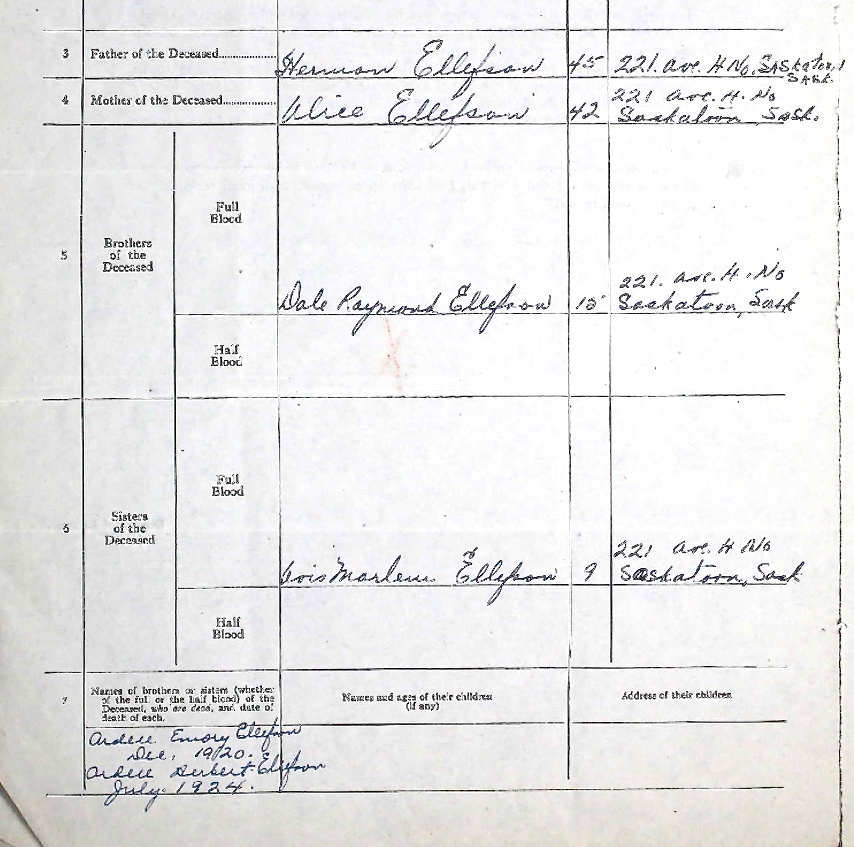 3 Father of the Deceased.............. Herman Ellefson 45 221. Ave. H No, Saskatoon
Sask.
4 Mother of the Deceased............. Alice Ellefson 42 221 Ave. H. No
Saskatoon, Sask.
5 Brothers
of the
Deceased
Full
Blood
221. Ave. H. No
Dale Raymond Ellefson 15 Saskatoon, Sask
Half
Blood
6 Sisters
of the
Deceased
Full
Blood
221 Ave. H No
Lois Marlene Ellefson 9 Saskatoon, Sask
Half
Blood
7 Names of brothers or sisters (whether
of the full or the half blood) of the
Deceased, who are dead, and date of
death of each.
Names and ages of their children
(if any)
Address of their children
Emory Ellefson
Dec, 1920.
Herbert Ellefson
July. 1924.